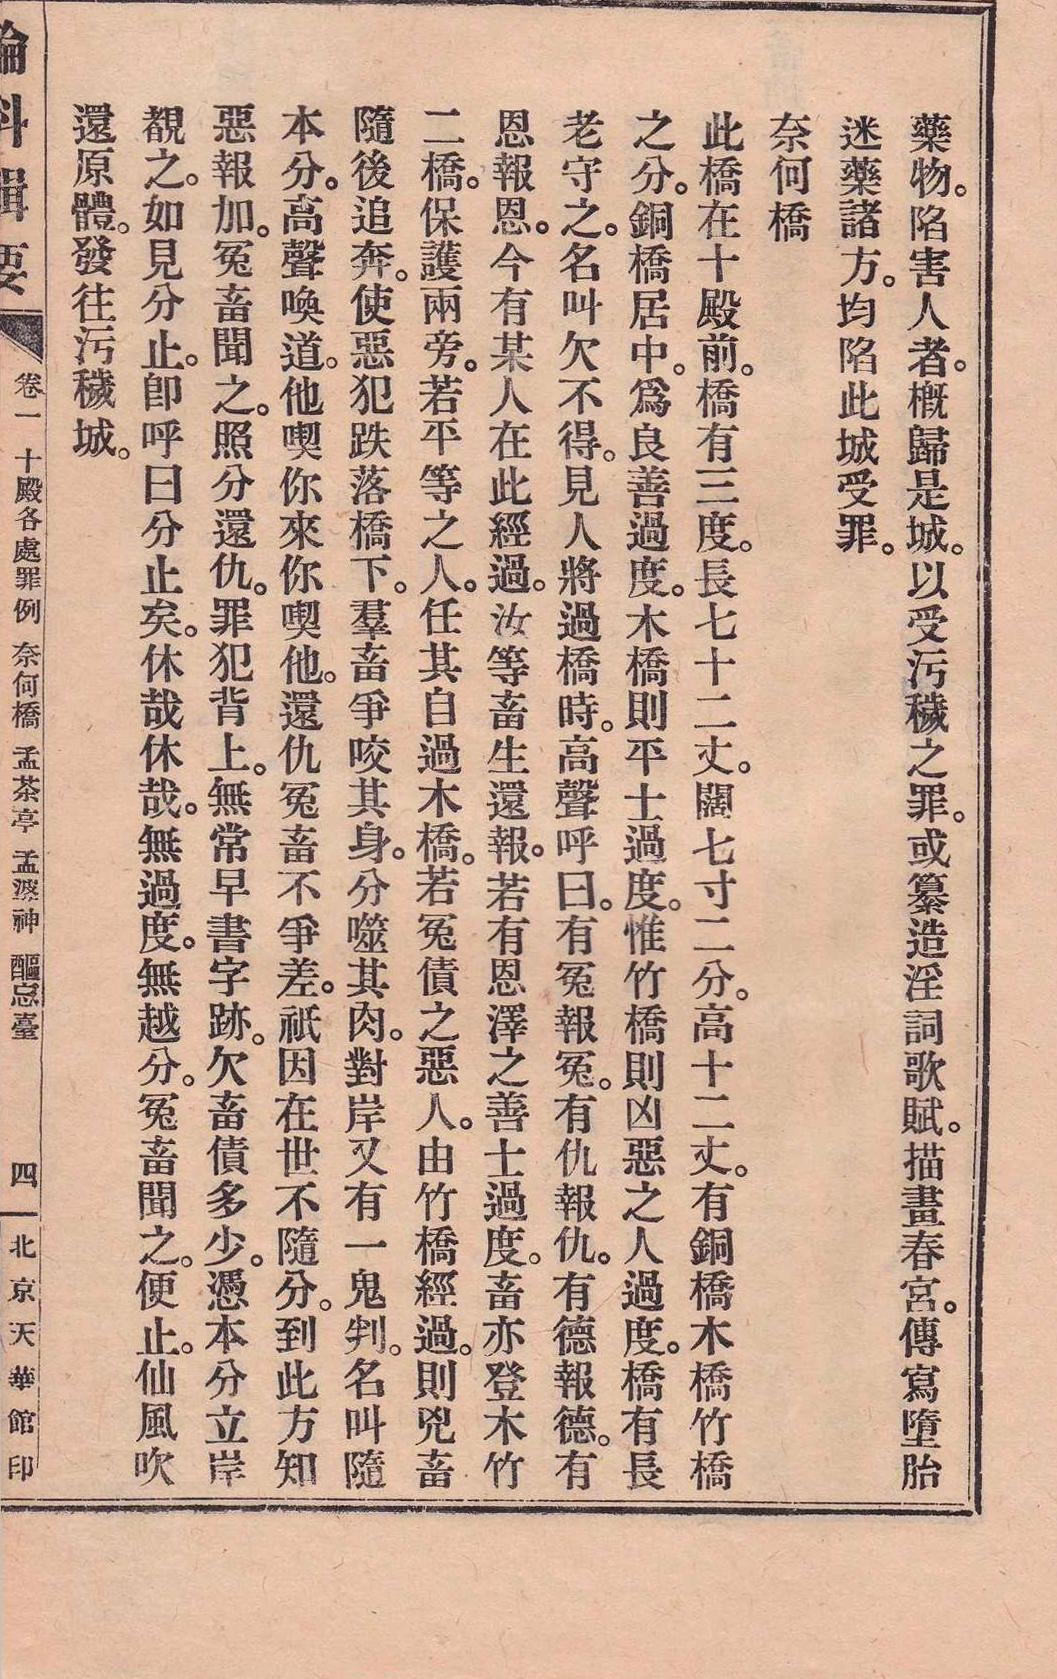 藥物。陷害人者。槪歸是城。以受污穢之罪。或纂造淫詞歌賦。描畫春宮。傳寫墮胎
迷藥諸方。均陷此城受罪。
奈何橋
此橋在十殿前。橋有三度。長七十二丈。闊七寸二分。高十二丈。有銅橋木橋竹橋
之分。銅橋居中。爲良善過度。木橋則平士過度。惟竹橋則凶惡之人過度。橋有長
老守之。名叫欠不得。見人將過橋時。高聲呼曰。有冤報冤。有仇報仇。有德報德。有
恩報恩。今有某人在此經過。汝等畜生還報。若有恩澤之善士過度。畜亦登木竹
二橋。保護兩旁。若平等之人。任其自過木橋。若冤債之惡人。由竹橋經過。則兇畜
隨後追奔。使惡犯跌落橋下。羣畜爭咬其身。分噬其肉。對岸又有一鬼判。名叫隨
本分。高聲喚道。他喫你來你喫他。還仇冤畜不爭差。祇因在世不隨分。到此方知
惡報加。冤畜聞之。照分還仇。罪犯背上。無常早書字跡。欠畜債多少。憑本分立岸
覩之。如見分止。卽呼曰分止矣。休哉休哉。無過度。無越分。冤畜聞之。便止。仙風吹
還原體。發往污穢城。
論科輯要
卷一 十殿各處罪例 奈何橋 孟茶亭 孟婆神 醧忘臺 四
北京天華館印